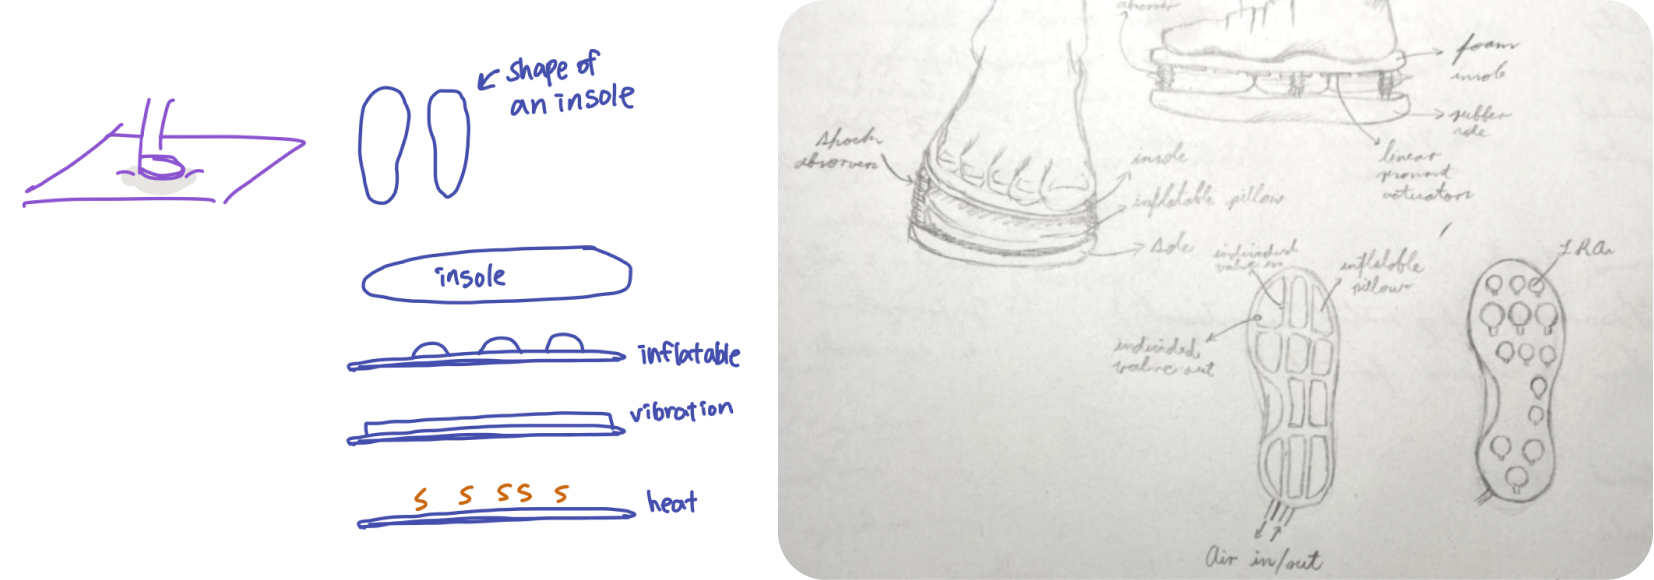 shape of
an insole
insole
inflatable
vibration
heat
shock
absorver
insole
inflatable pillow
sole
absorver
foam
insole
rubber
sole
linear
actuators
individual
valve in
inflatable
pillow
individ
valve out
Air in/out
LRAs